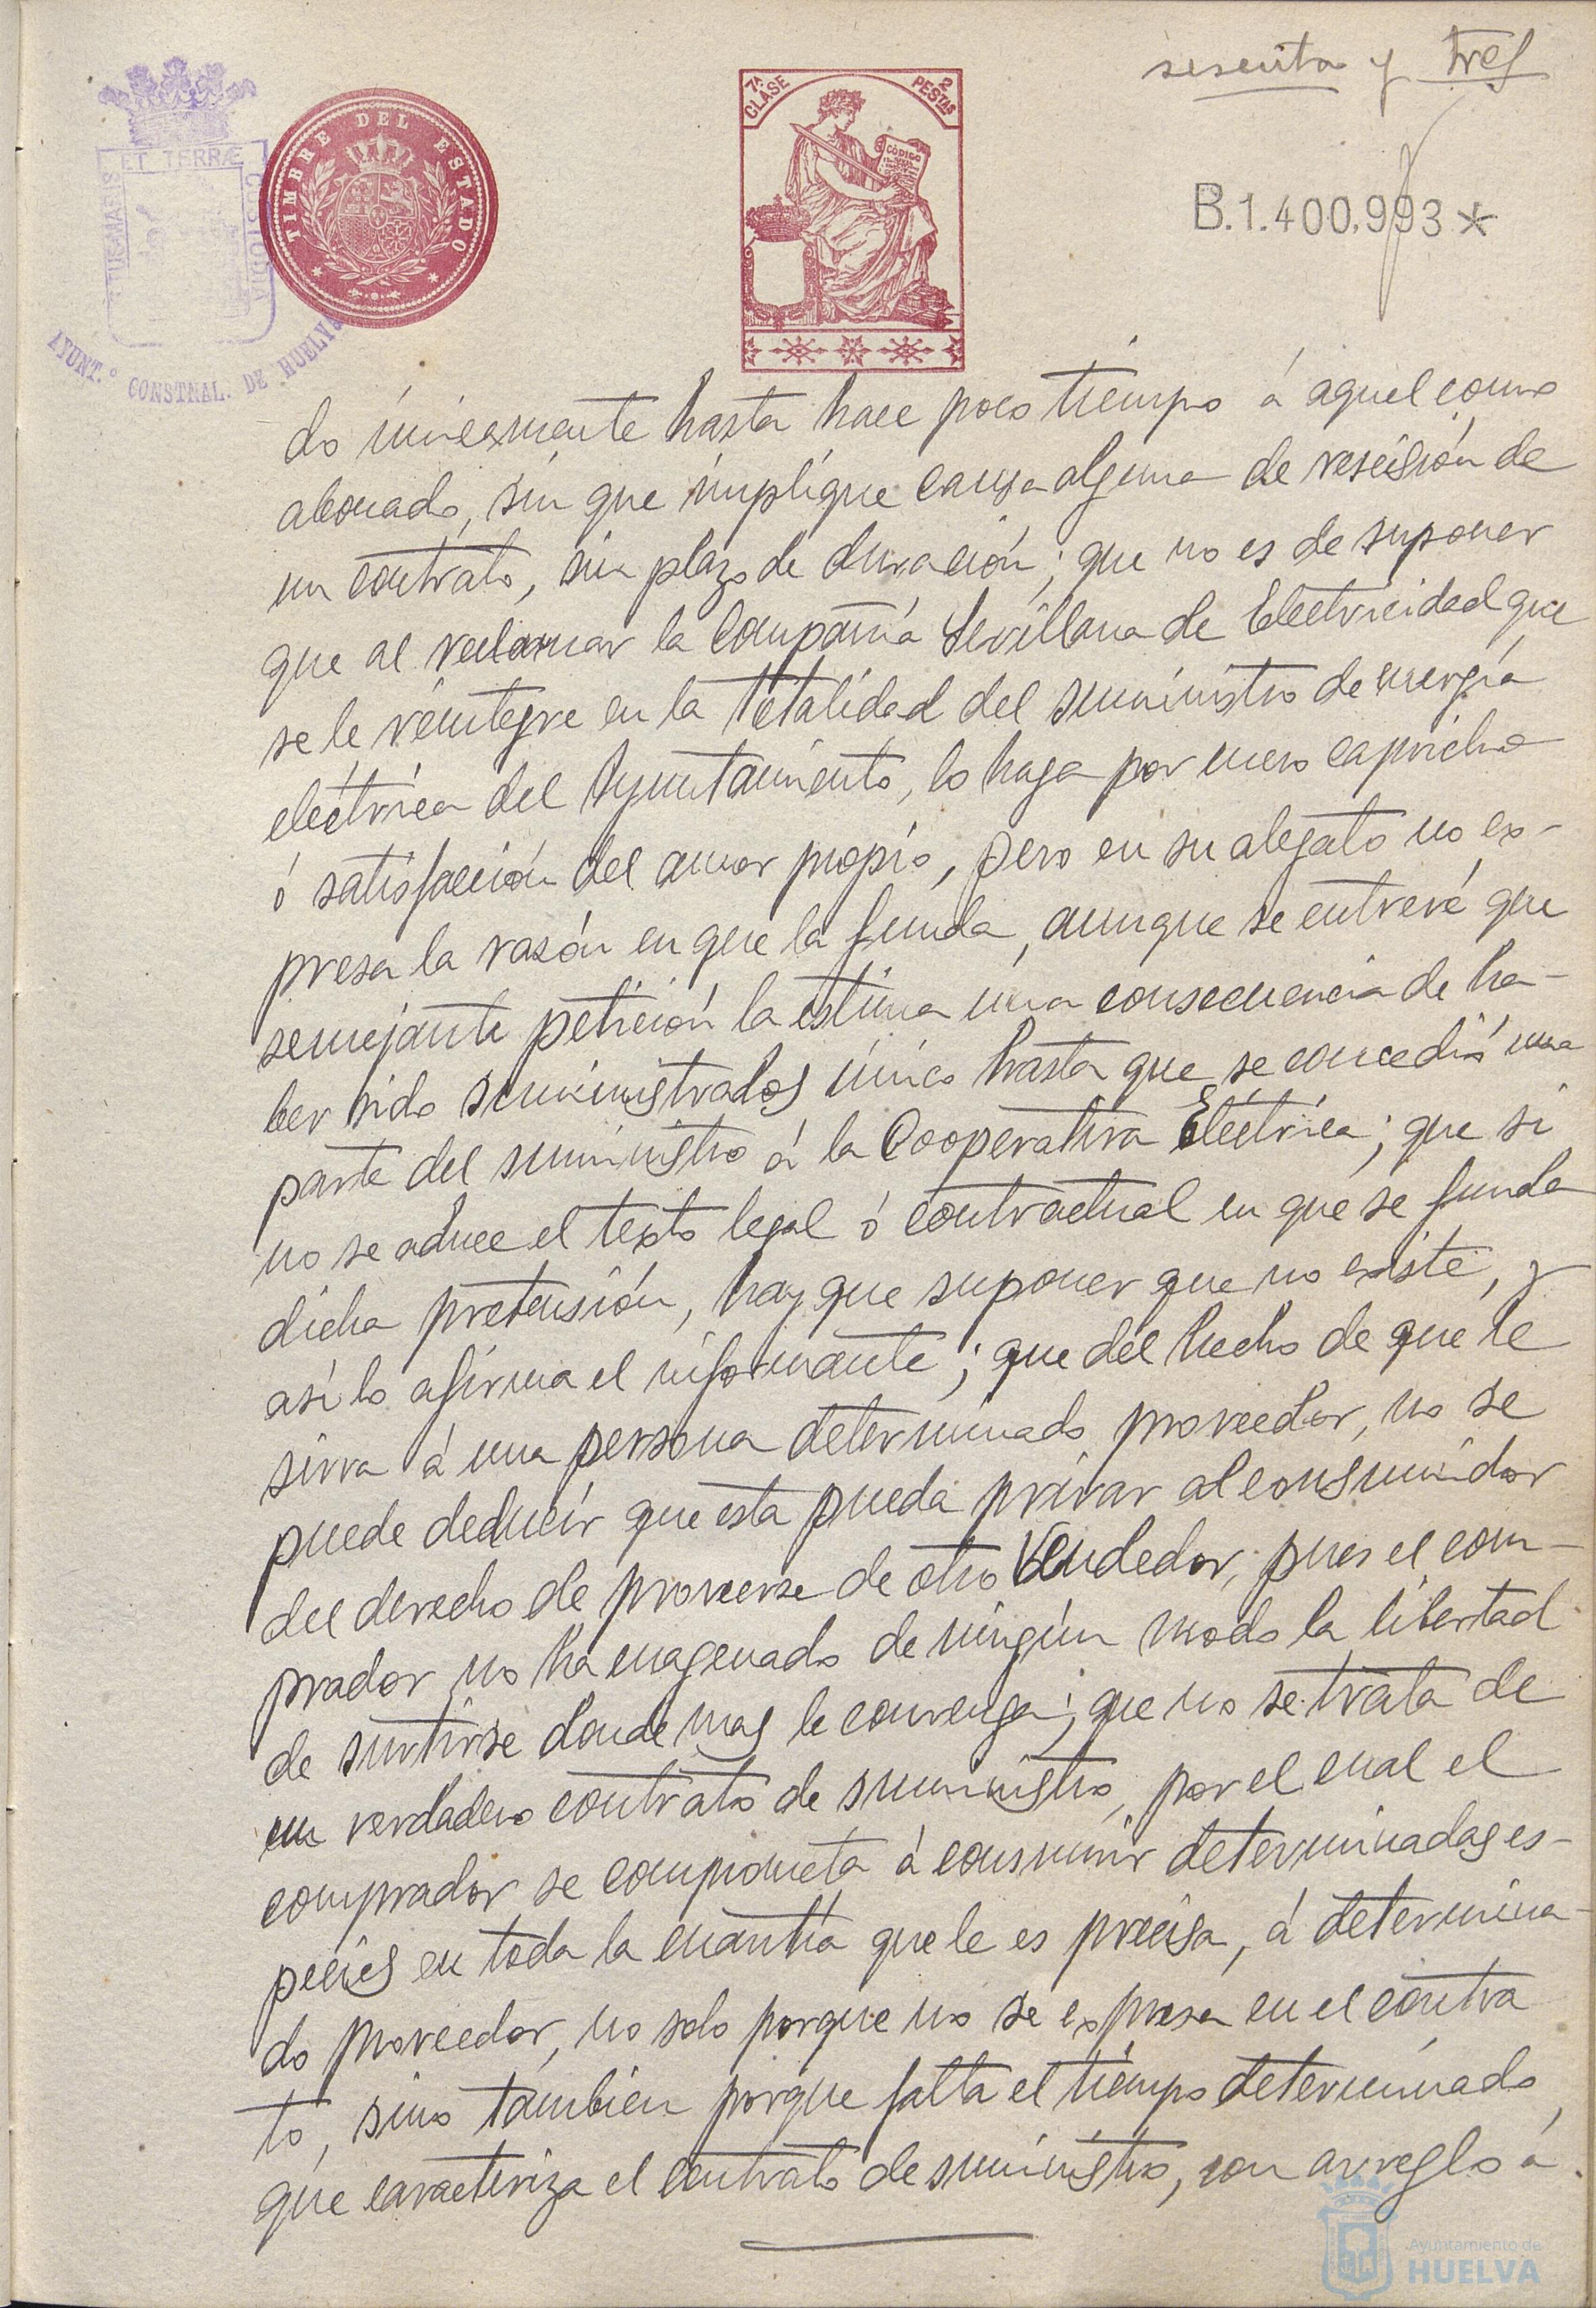 sesenta y tres
PORTUS MARIS ET TERRÆ CUSTODIA
AYUNT.º CONSTNAL. DE HUELVA
TIMBRE DEL ESTADO
7ª CLASE
2 PESTAS
CÓDIGO
B.1.400.993*
do únicamente hasta hace poco tiempo á aquel como
abonado, sin que implique causa alguna de rescisión de
un contrato, sin plazo de duración; que no es de suponer
que al reclamar la Compañía Sevillana de Electricidad que
se le reintegre en la totalidad del suministro de energía
eléctrica del Ayuntamiento, lo haga por mero capricho
ó satisfacción del amor propio, pero en su alegato no ex-
presa la razón en que la funda, aunque se entrevé que
semejante petición la estima una consecuencia de ha-
ber sido suministrados único hasta que se concedió una
parte del suministro á la Cooperativa Eléctrica; que si
no se aduce el texto legal ó contractual en que se funda
dicha pretensión, hay que suponer que no existe, y
así lo afirma el informante; que del hecho de que le
sirva á una persona determinado proveedor, no se
puede deducir que esta pueda privar al consumidor
del derecho de proveerse de otro Vendedor, pues el com-
prador no ha enagenado de ningún modo la libertad
de surtirse donde mas le convenga; que no se trata de
un verdadero contrato de suministro, por el cual el
comprador se comprometa á consumir determinadas es-
pecies en toda la cuantía que le es precisa, á determina-
do proveedor, no solo porque no se expresa en el contra
to, sino tambien porque falta el tiempo determinado,
que caracteriza el contrato de suministro, con arreglo á
Ayuntamiento de
HUELVA